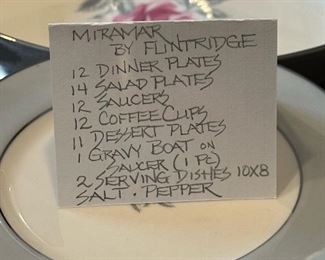 MIRAMAR
BY FLINTRIDGE
12 DINNER PLATES
14 SALAD PLATES
12 SAUCERS
12 COFFEE CUPS
11 DESSERT PLATES
1 GRAVY BOAT ON
SAUCER (1 PC)
2 SERVING DISHES 10X8
SALT · PEPPER